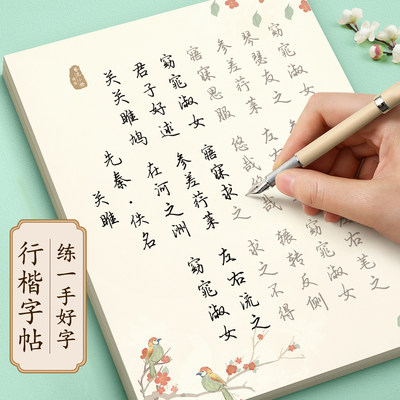 关雎
先秦·佚名
关关雎鸠
在河之洲
窈窕淑女
君子好逑
参差荇菜
左右流之
窈窕淑女
寤寐求之
求之不得
寤寐思服
悠哉
辗转反侧
参差荇菜
左右
窈窕淑女
琴瑟友之
左右芼之
窈窕淑女
练一手好字
行楷字帖